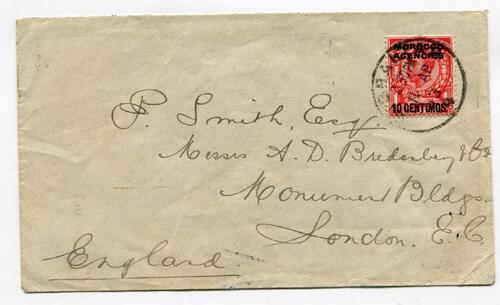 MOROCCO
AGENCIES
10 CENTIMOS
P. Smith, Esq.
Messrs A. D. Bredenberg & Co
Monument Bldgs.
London. E.C.
England